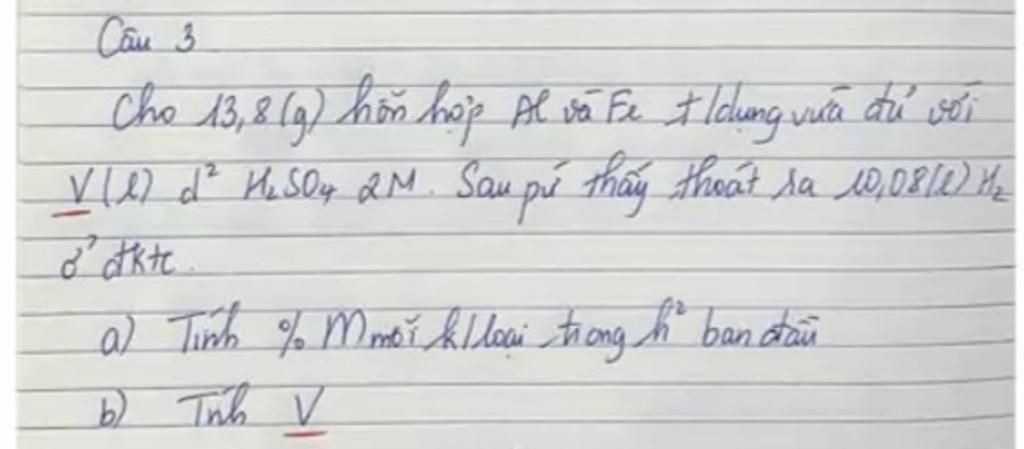 Câu 3
Cho 13,8(g) hỗn hợp Al và Fe t/dụng vừa đủ với
V(l) d² H₂SO₄ 2M. Sau pứ thấy thoát ra 10,08(l) H₂
ở đktc.
a) Tính % M mỗi k/loại trong h² ban đầu
b) Tính V